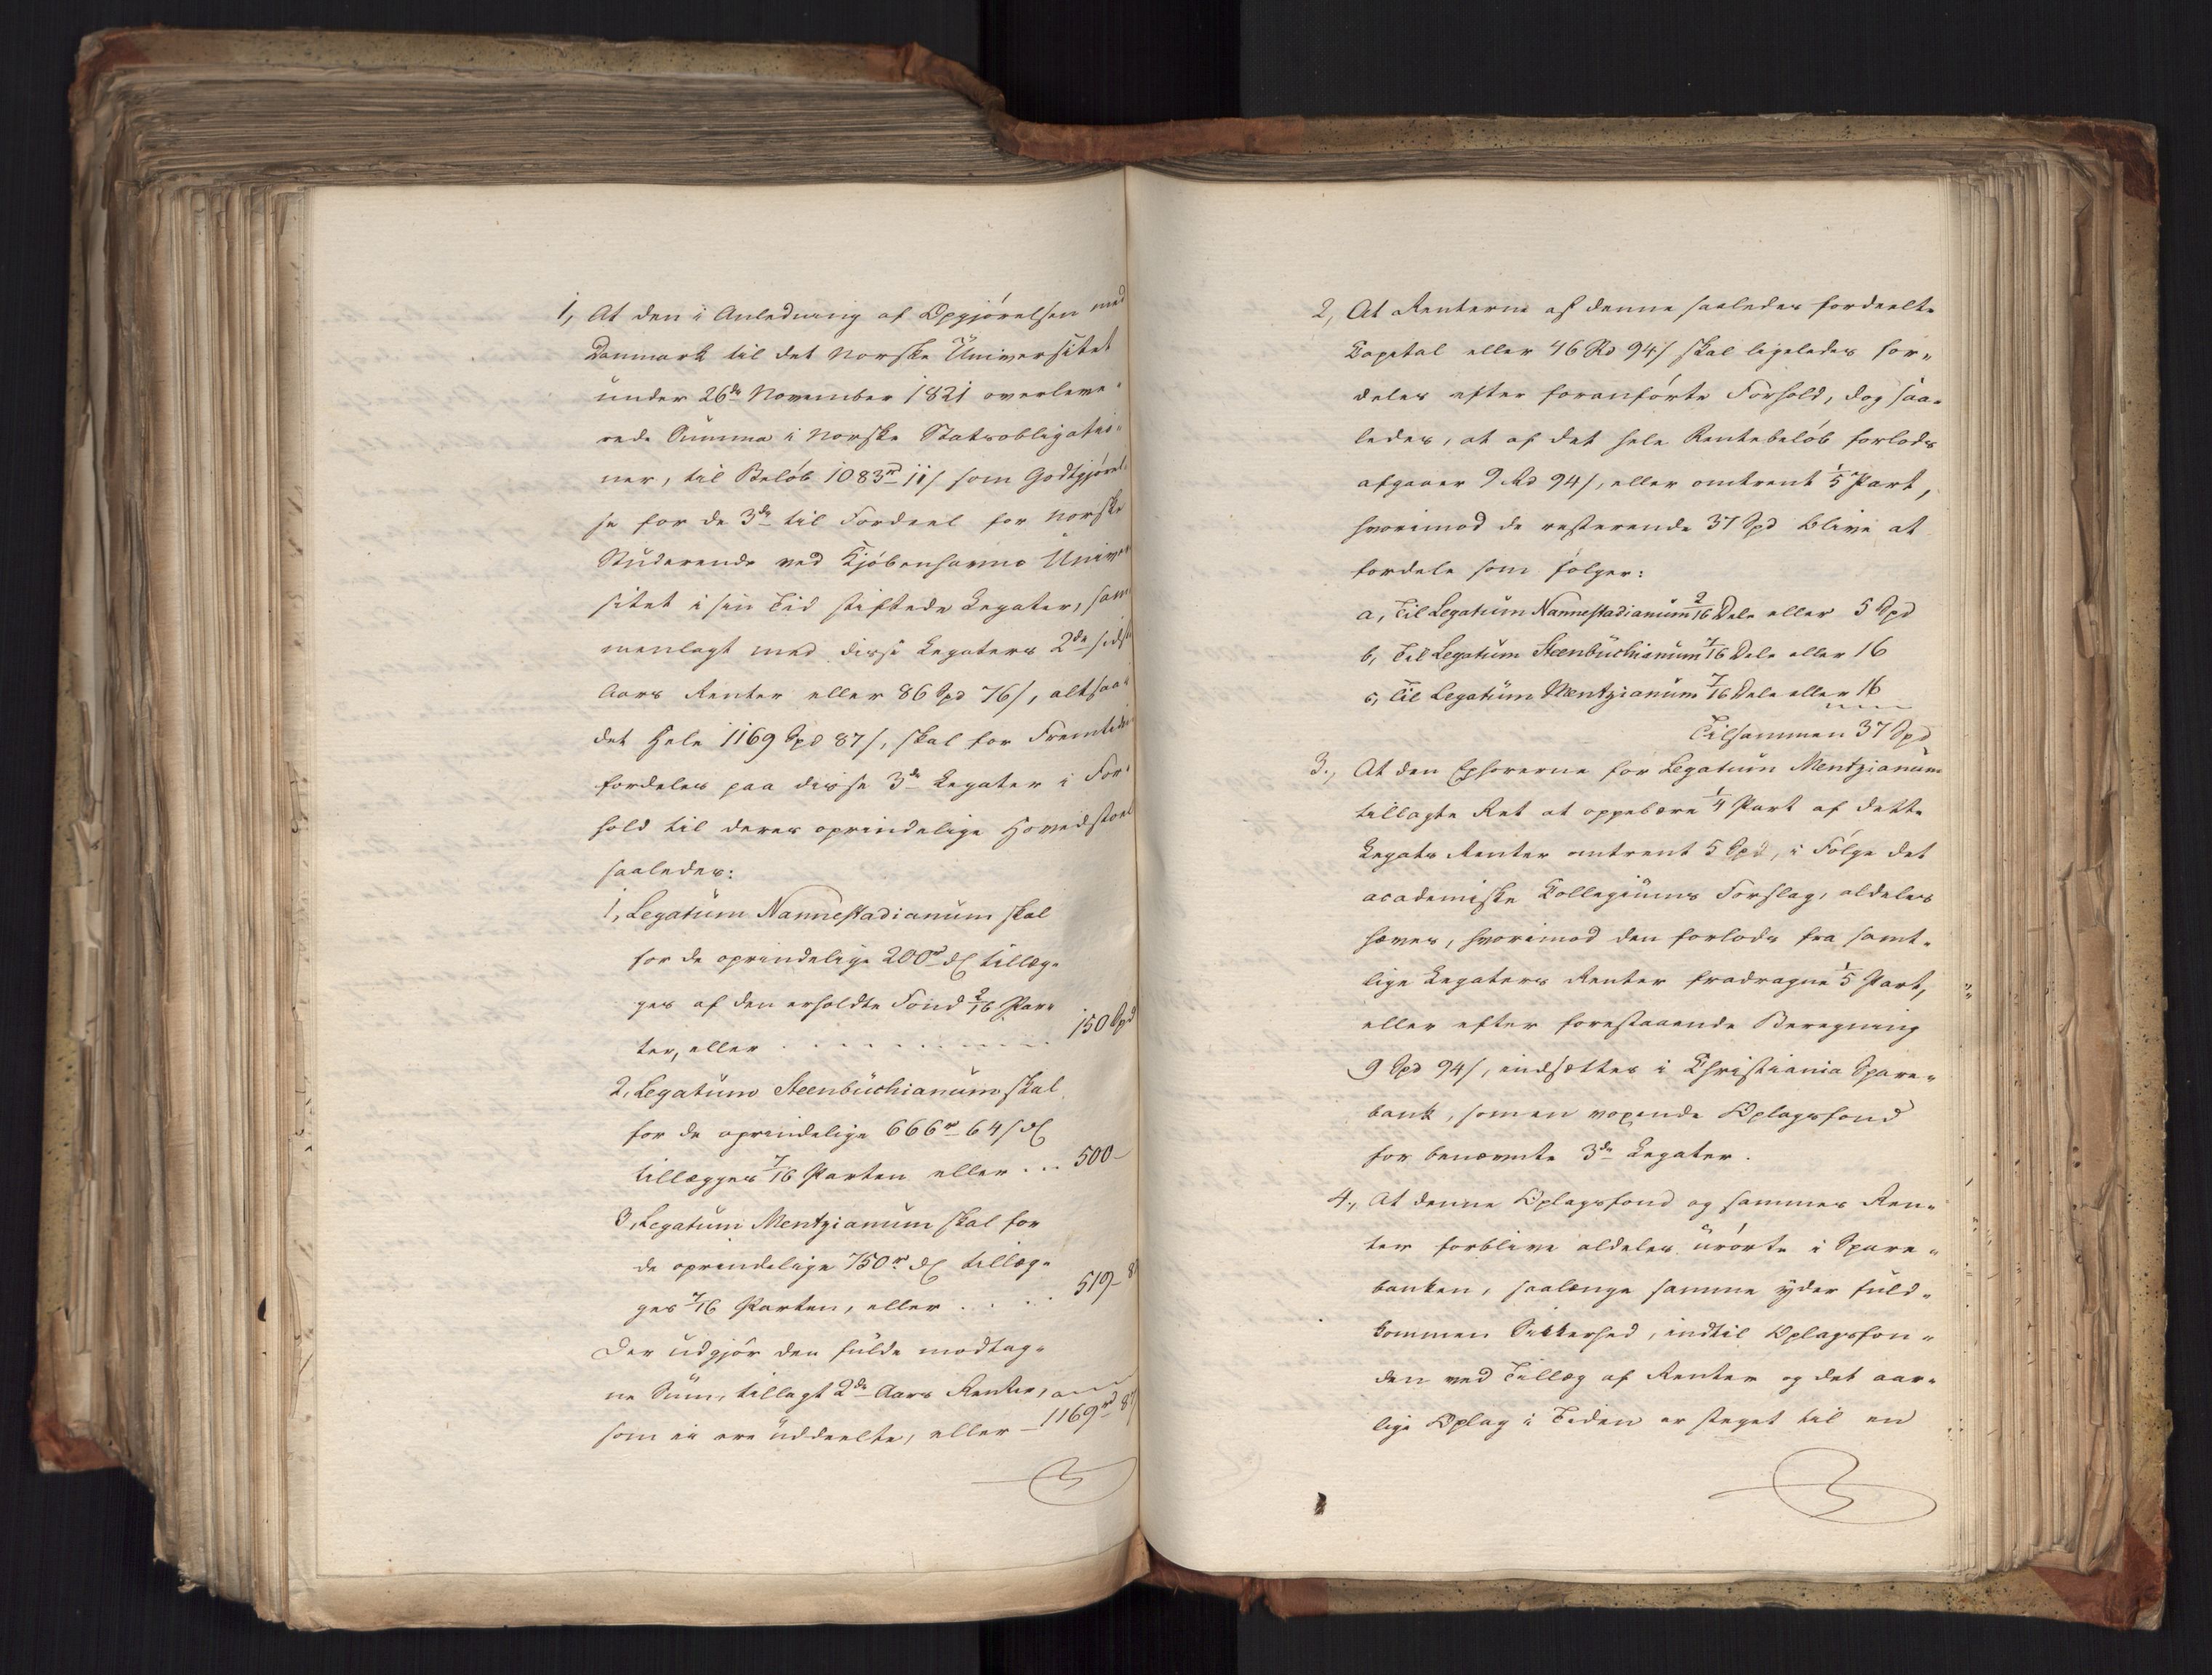 1, At den i Anledning af Opgjörelsen med
Danmark til det Norske Universitet
under 26de November 1821 overleve-
rede Summa i Norske Statsobligatio-
ner, til Belöb 1083rd 11/ som Godtgjörel-
se for de 3de til Fordeel for Norske
Studerende ved Kjöbenhavns Univer
sitet i sin Tid stiftede Legater, sam
menlagt med disse Legaters 2de sidste
Aars Renter eller 86 Spd 76/, altsaa
det Hele 1169 Spd 87/, skal for Fremtiden
fordeles paa disse 3de Legater i For-
hold til deres oprindelige Hovedstoel
saaledes:
1, Legatum Nannestadianum skal
for de oprindelige 200rd dC tillæg-
ges af den erholdte Fond 2/16 Par-
ter, eller . . . . . . . . . . 150 Spd
2, Legatum Steenbuchianum skal
for de oprindelige 666rd 64/ dC
tillægges 7/16 Parten eller ... 500 -
3, Legatum Mentzianum skal for
de oprindelige 750rd dC tillæg-
ges 7/16 Parten, eller . . . . 519 - 87
Der udgjör den fulde modtag-
ne Sum, tillagt 2de Aars Renter,
som ei ere uddeelte, eller - 1169rd 87
2, At Renterne af denne saaledes fordeelte
Kapital eller 46 Rd 94/ skal ligeledes for-
deles efter foranförte Forhold, dog saa-
ledes, at af det hele Rentebelöb forlods
afgaaer 9 Rd 94/, eller omtrent 1/5 Part,
hvorimod de resterende 37 Spd blive at
fordele som fölger:
a, Til Legatum Nannestadianum 2/16 Dele eller 5 Spd
b, Til Legatum Steenbuchianum 7/16 Dele eller 16
c, Til Legatum Mentzianum 7/16 Dele eller 16
Tilsammen 37 Spd
3., At den Ephorerne for Legatum Mentzianum
tillagte Ret at oppebære 1/4 Part af dette
Legats Renter omtrent 5 Spd, i Fölge det
academiske Kollegiums Forslag, aldeles
hæves, hvorimod den forlods fra samt-
lige Legaters Renter fradragne 1/5 Part,
eller efter forestaaende Beregning
9 Spd 94/, indsættes i Christiania Spare-
bank, som en voxende Oplagsfond
for benævnte 3de Legater.
4., At denne Oplagsfond og sammes Ren-
ter forblive aldeles urörte i Spare-
banken, saalænge samme yder fuld-
kommen Sikkerhed, indtil Oplagsfon-
den ved Tillæg af Renter og det aar-
lige Oplag i Tiden er steget til en